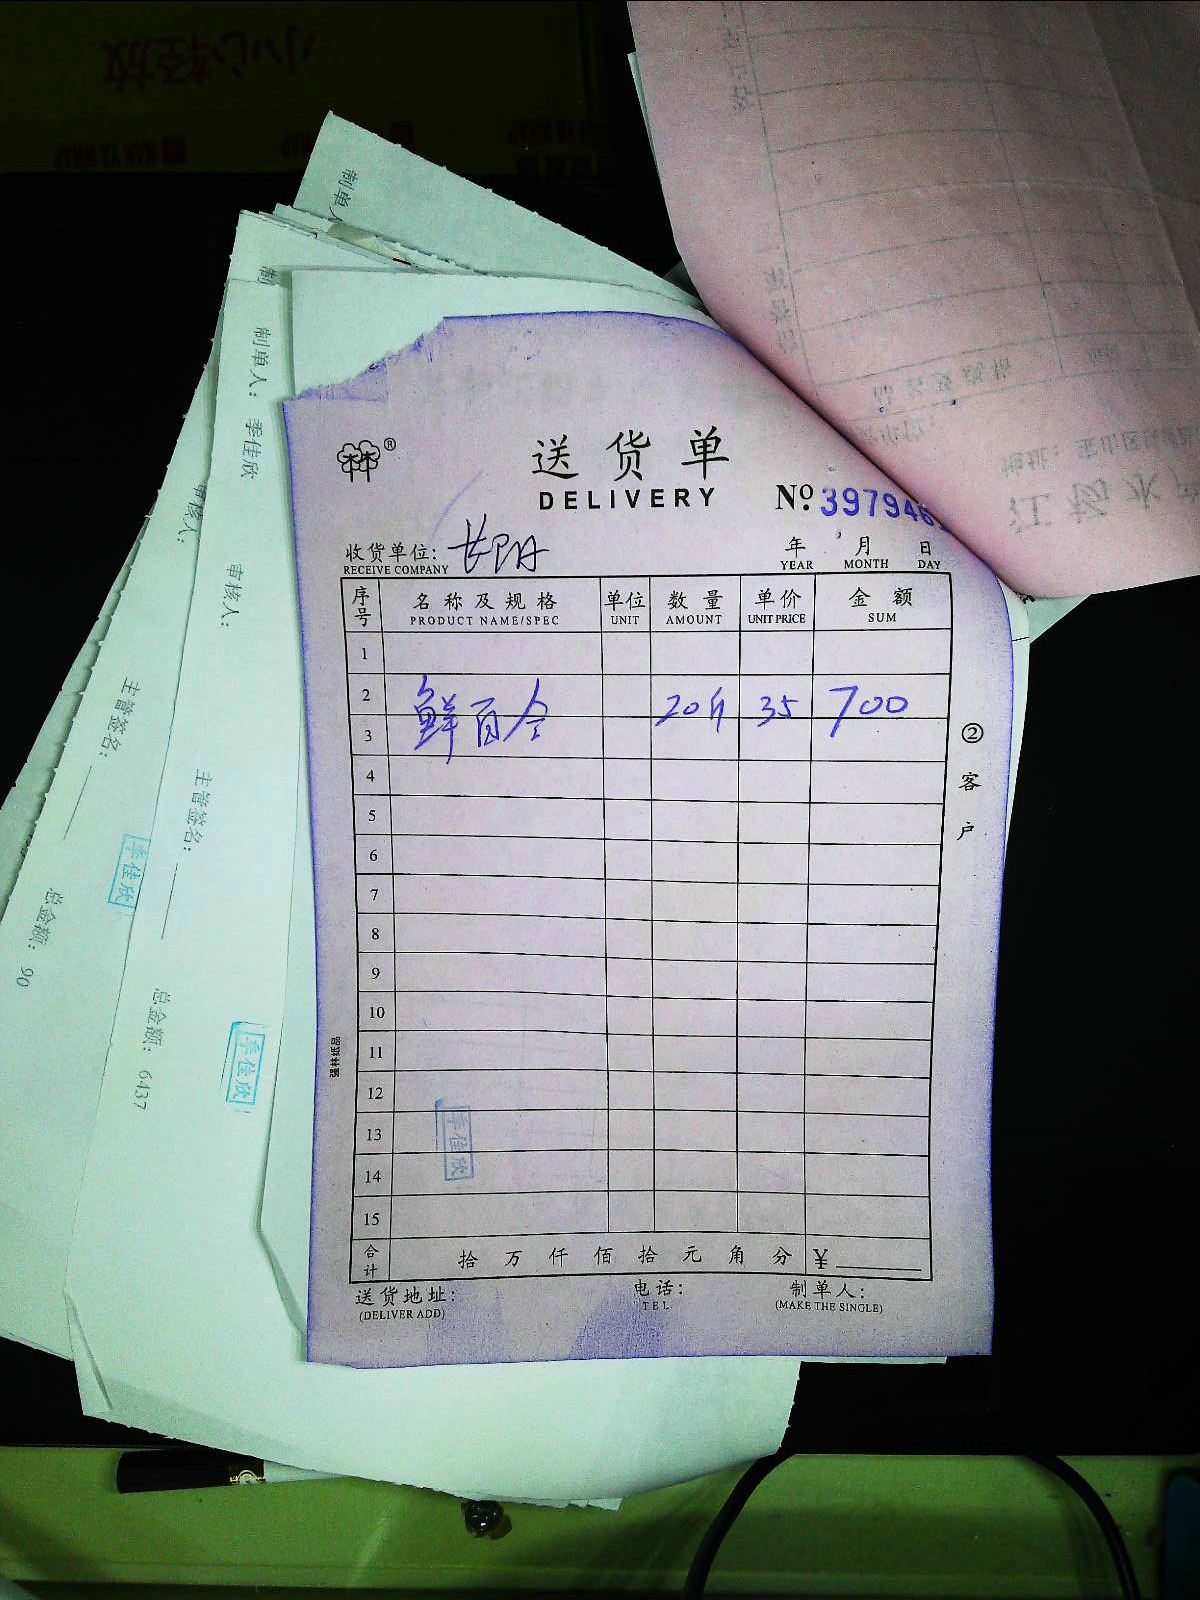 小心轻放
NAN YA WRAP
制单人
制
制单人: 季佳欣
审核人:
审核人:
主管签名:
主管签名:
季佳欣
总金额: 90
总金额: 6437
季佳欣
送货单
DELIVERY
收货单位: 长阳
RECEIVE COMPANY
年 月 日
YEAR MONTH DAY
序号 名称及规格 单位 数量 单价 金额
PRODUCT NAME/SPEC UNIT AMOUNT UNIT PRICE SUM
1
2
3
鲜百合 20斤 35 700
4
5
6
7
8
9
10
11
12
13
14
15
季佳欣
合计 拾 万 仟 佰 拾 元 角 分 ¥
送货地址: 电话: 制单人:
(DELIVER ADD) TEL (MAKE THE SINGLE)
②客户
强林纸品